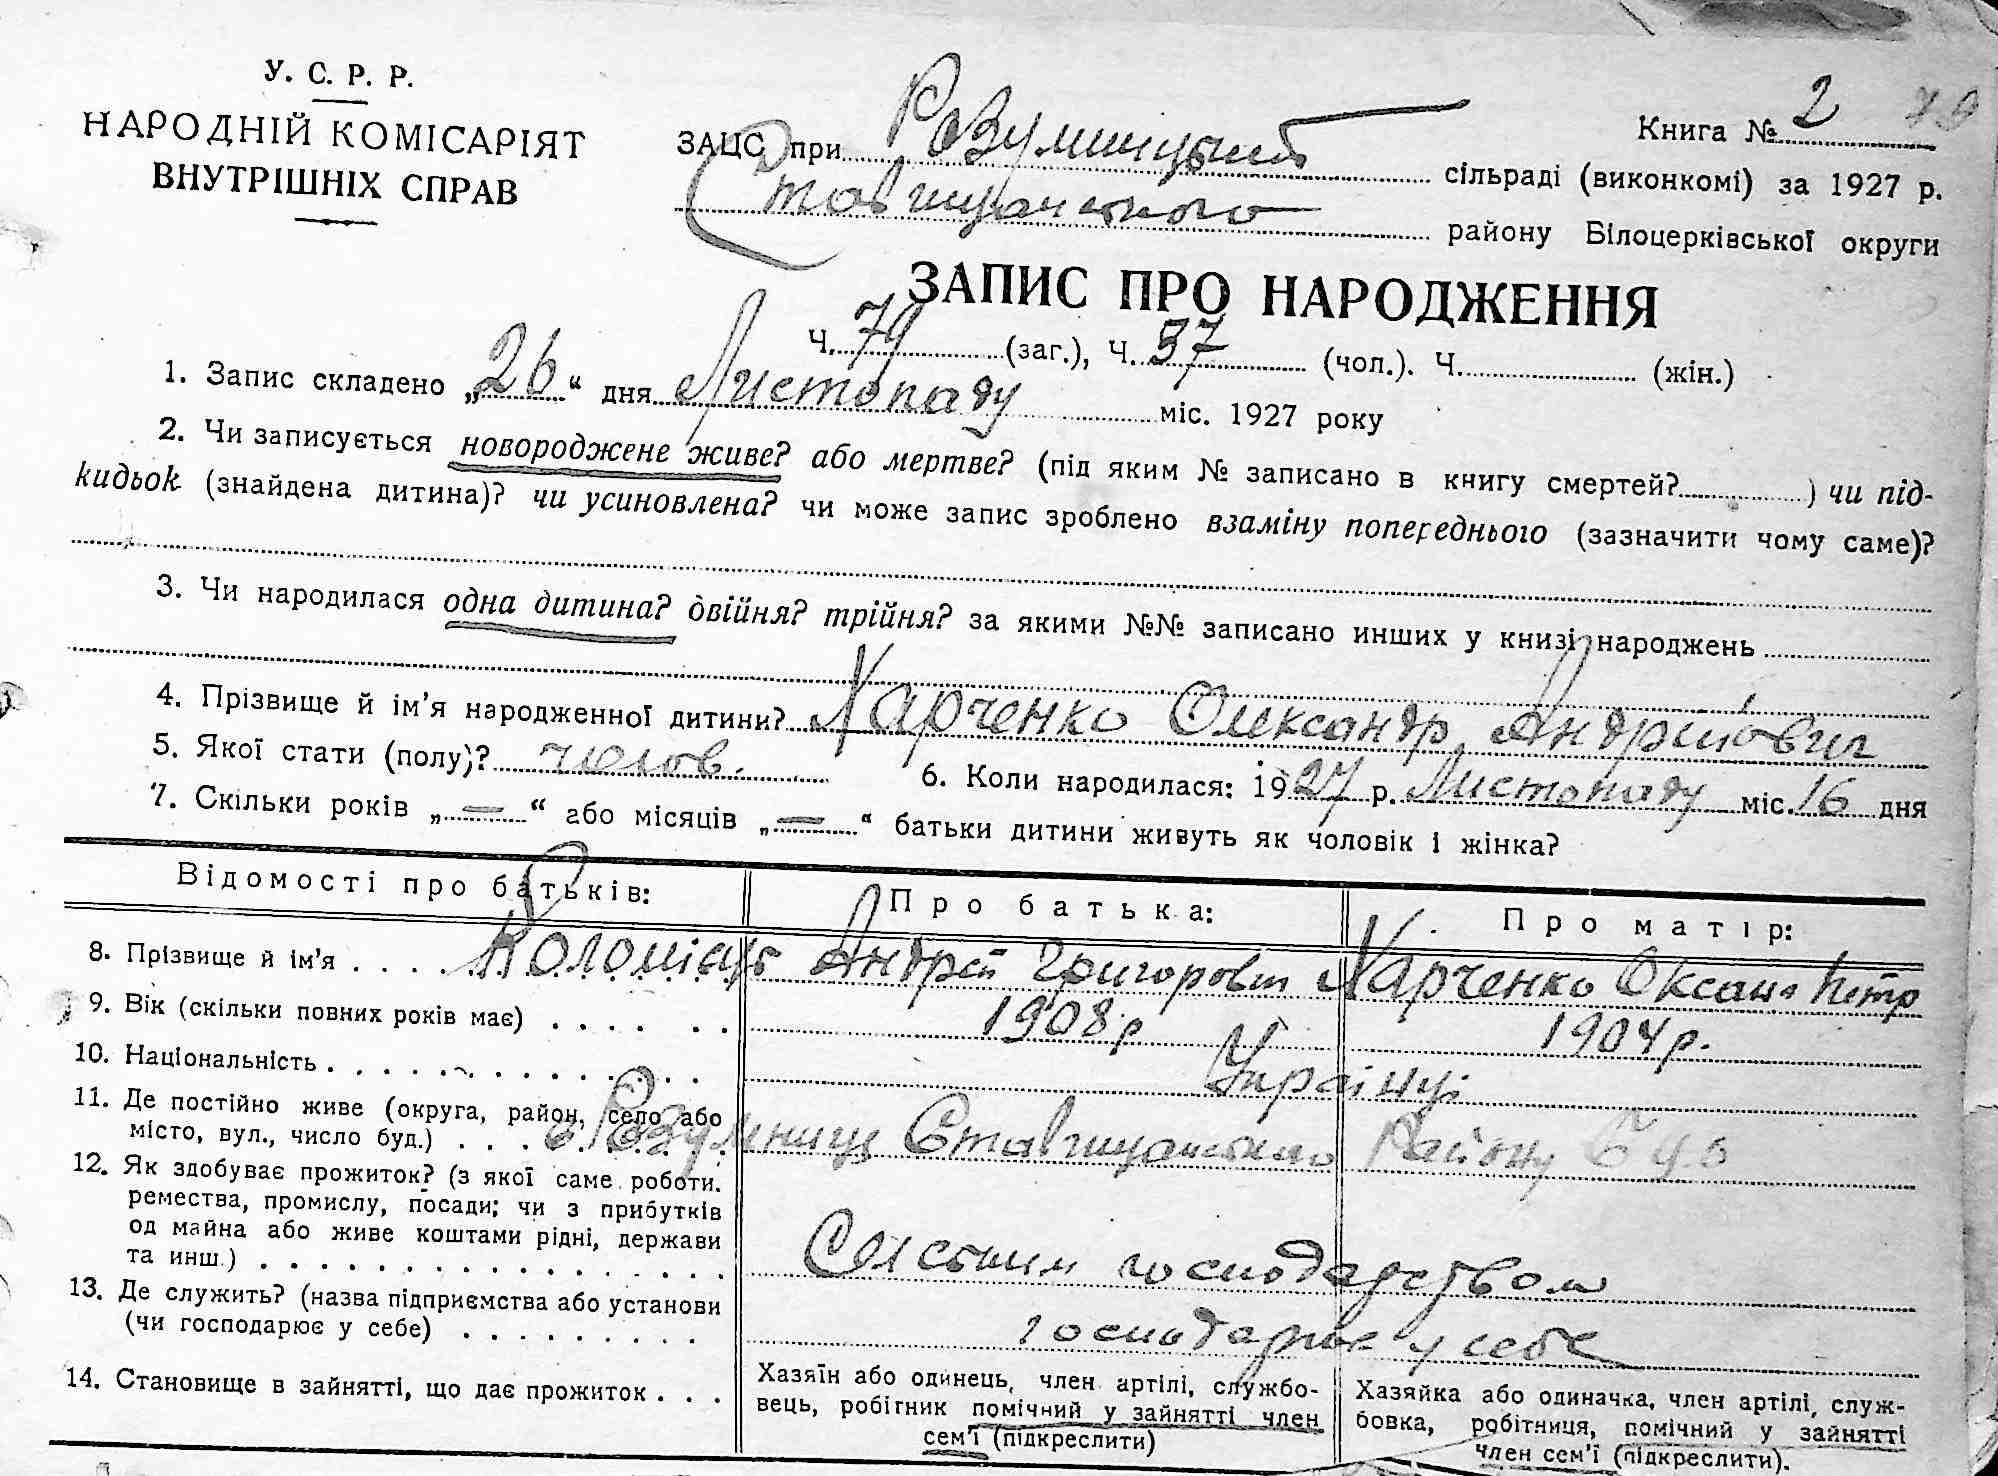 У. С. Р. Р.
НАРОДНІЙ КОМІСАРІЯТ
ВНУТРІШНІХ СПРАВ
Книга № 2
ЗАЦС при Розумницькій сільраді (виконкомі) за 1927 р.
Ставищанського району Білоцерківської округи
ЗАПИС ПРО НАРОДЖЕННЯ
Ч. 79 (заг.), Ч. 37 (чол.). Ч. (жін.)
1. Запис складено „26“ дня Листопаду міс. 1927 року
2. Чи записується новороджене живе? або мертве? (під яким № записано в книгу смертей? ) чи під-
кидьок (знайдена дитина)? чи усиновлена? чи може запис зроблено взаміну попереднього (зазначити чому саме)?
3. Чи народилася одна дитина? двійня? трійня? за якими №№ записано инших у книзі народжень
4. Прізвище й ім'я народженної дитини? Харченко Олександр Андрійович
5. Якої стати (полу)? чолов. 6. Коли народилася: 1927 р. Листопаду міс. 16 дня
7. Скільки років „—“ або місяців „—“ батьки дитини живуть як чоловік і жінка?
Відомості про батьків: Про батька: Про матір:
8. Прізвище й ім'я Коломієць Андрей Григорович Харченко Оксана Петр
9. Вік (скільки повних років має) 1908 р 1904 р.
10. Національність Українці
11. Де постійно живе (округа, район, село або
місто, вул., число буд.) с. Розумниці Ставищанського Району
12. Як здобуває прожиток? (з якої саме роботи.
ремества, промислу, посади; чи з прибутків
од майна або живе коштами рідні, держави
та инш.) Сільським господарством
13. Де служить? (назва підприємства або установи
(чи господарює у себе) господарює у себе
14. Становище в зайнятті, що дає прожиток
Хазяїн або одинець, член артілі, службо-
вець, робігник помічний у зайнятті член
сем'ї (підкреслити)
Хазяйка або одиначка, член артілі, служ-
бовка, робітниця, помічний у зайнятті
член сем'ї (підкреслити).